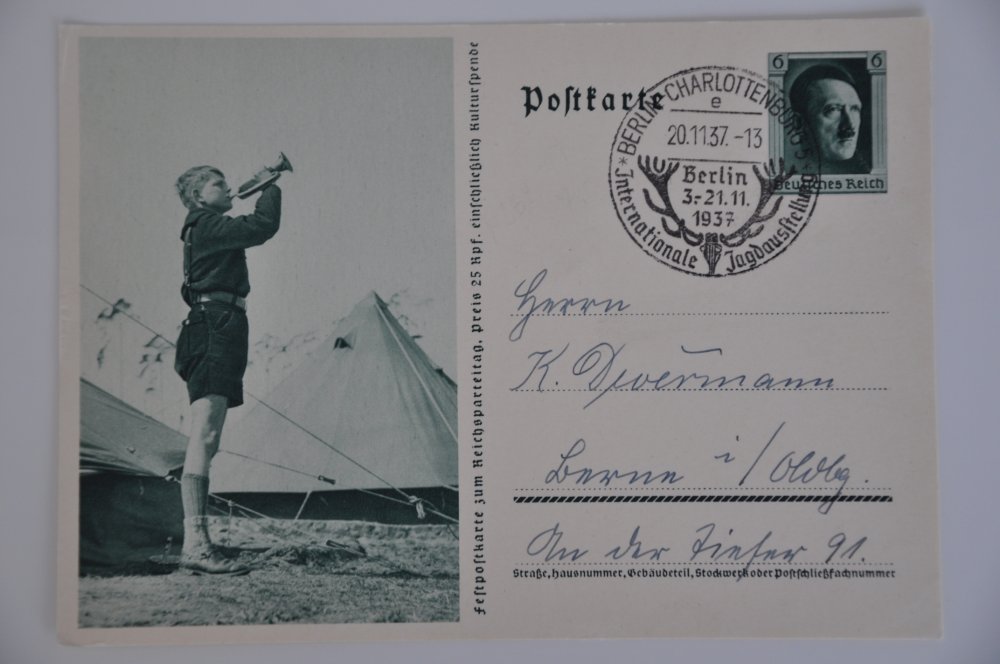 Festpostkarte zum Reichsparteitag. Preis 25 Rpf. einschließlich Kulturspende
Postkarte
6 6
Deutsches Reich
* BERLIN-CHARLOTTENBURG 5 *
e
20.11.37.-13
Berlin
3.-21.11.
1937
Internationale Jagdausstellung
Herrn
K. Dewermann
Berne i/Oldbg.
An der 91.
Straße, Hausnummer, Gebäudeteil, Stockwerk oder Postschließfachnummer